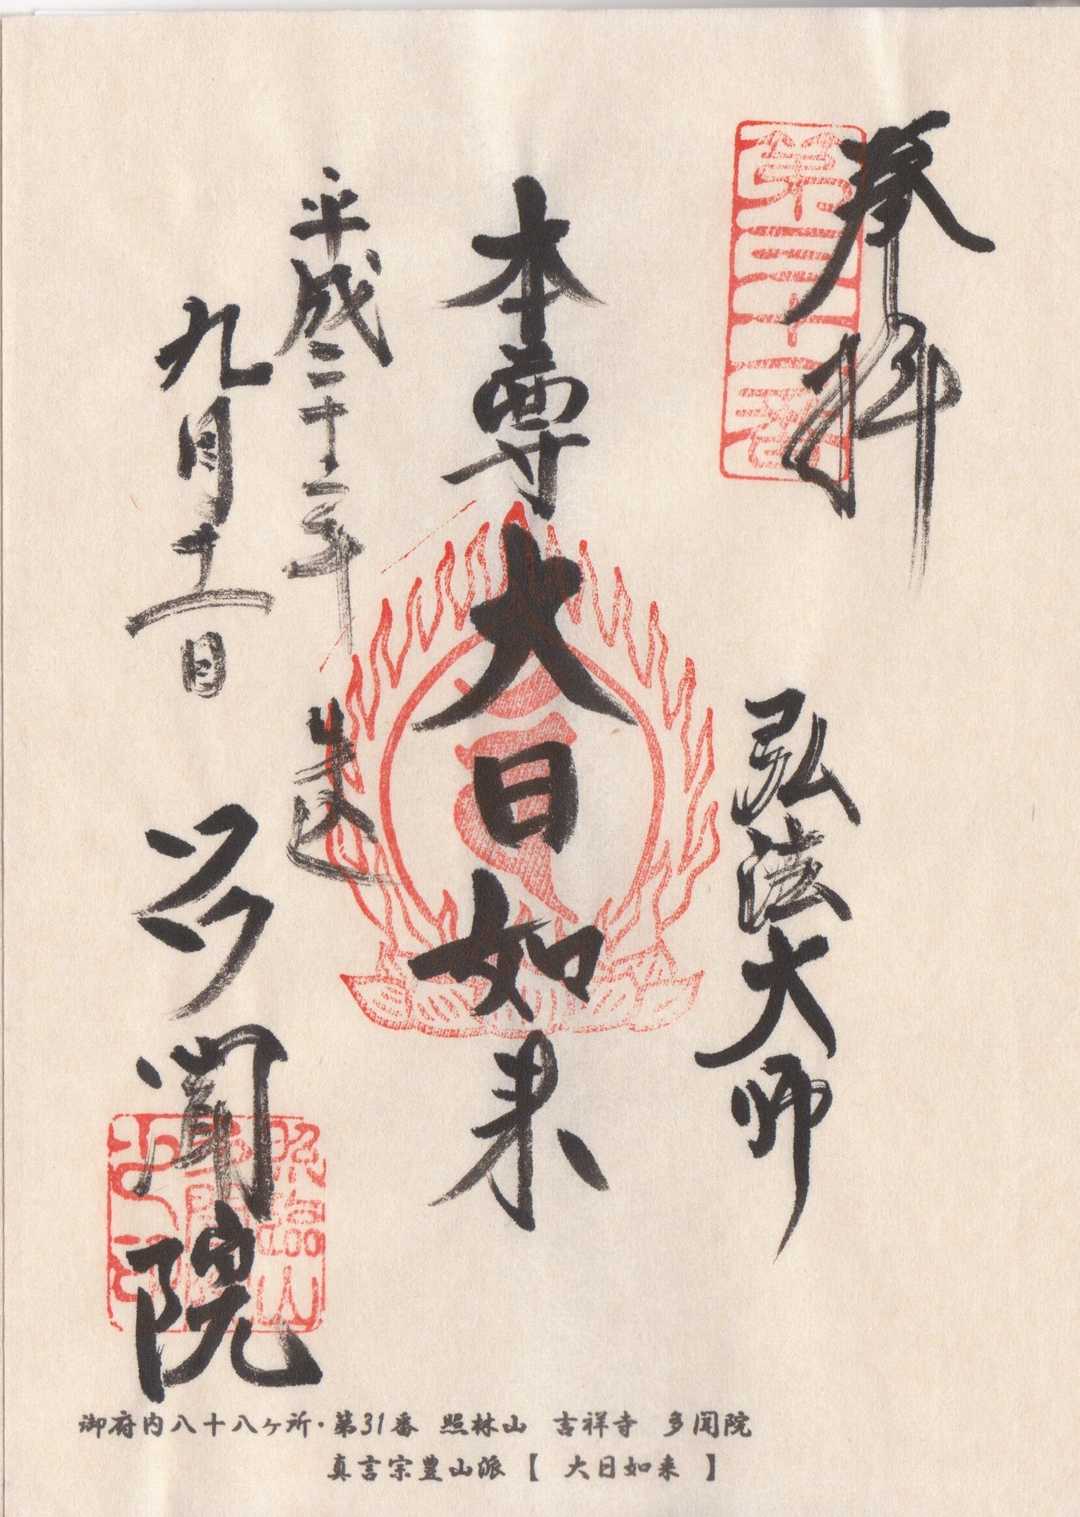 奉拝
第三十一番
弘法大師
本尊大日如来
平成二十二年
九月十二日
多聞院
御府内八十八ヶ所・第31番 照林山 吉祥寺 多聞院
真言宗豊山派【 大日如来 】